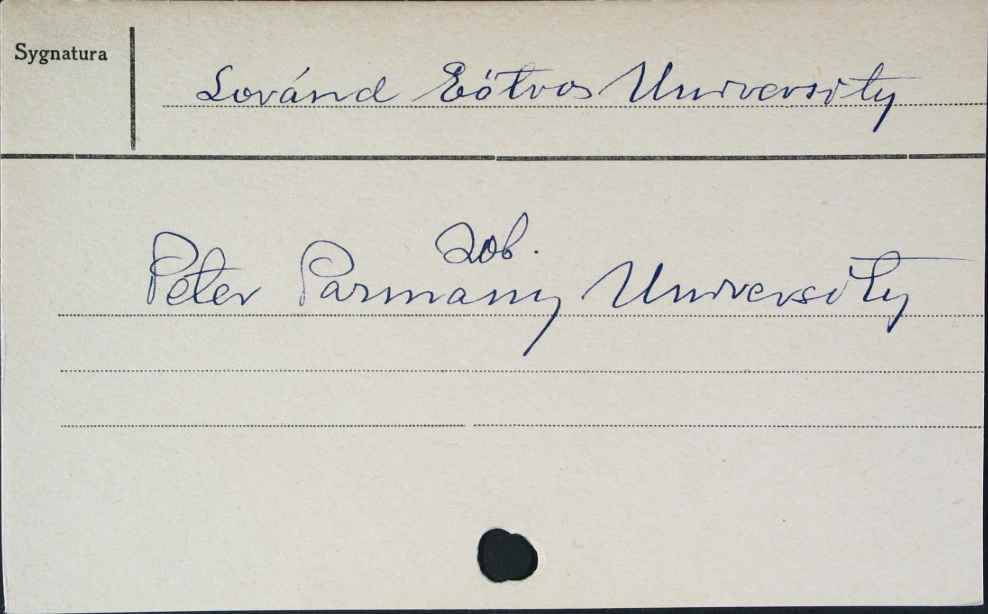 Sygnatura
Lovánd Eötvos University
zob.
Peter Parmany University